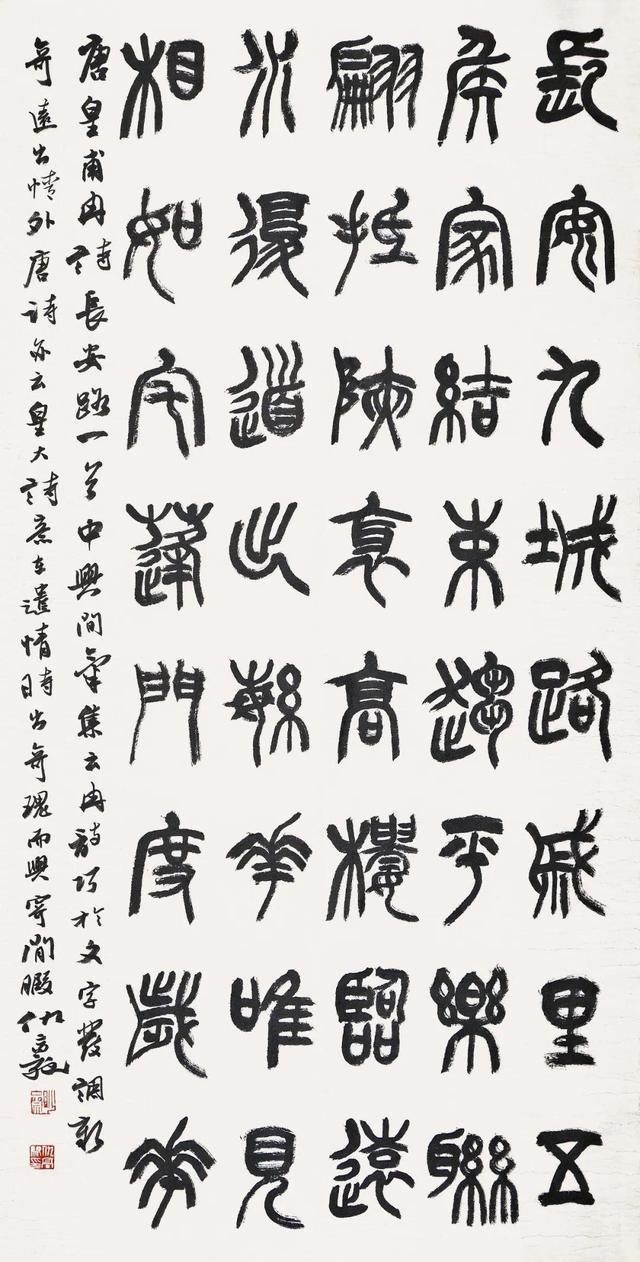 長安九城路戚里五
侯家結束趨平樂聯
翩抵陜衺高樓臨遠
水復道出緐華唯見
相如宅蓬門度歲華
唐皇甫冉詩長安路一首中興間氣集云冉詩巧於文字發調新
奇遠出情外唐詩亦云皇大詩意在遣情時出奇瑰而興寄閒暇